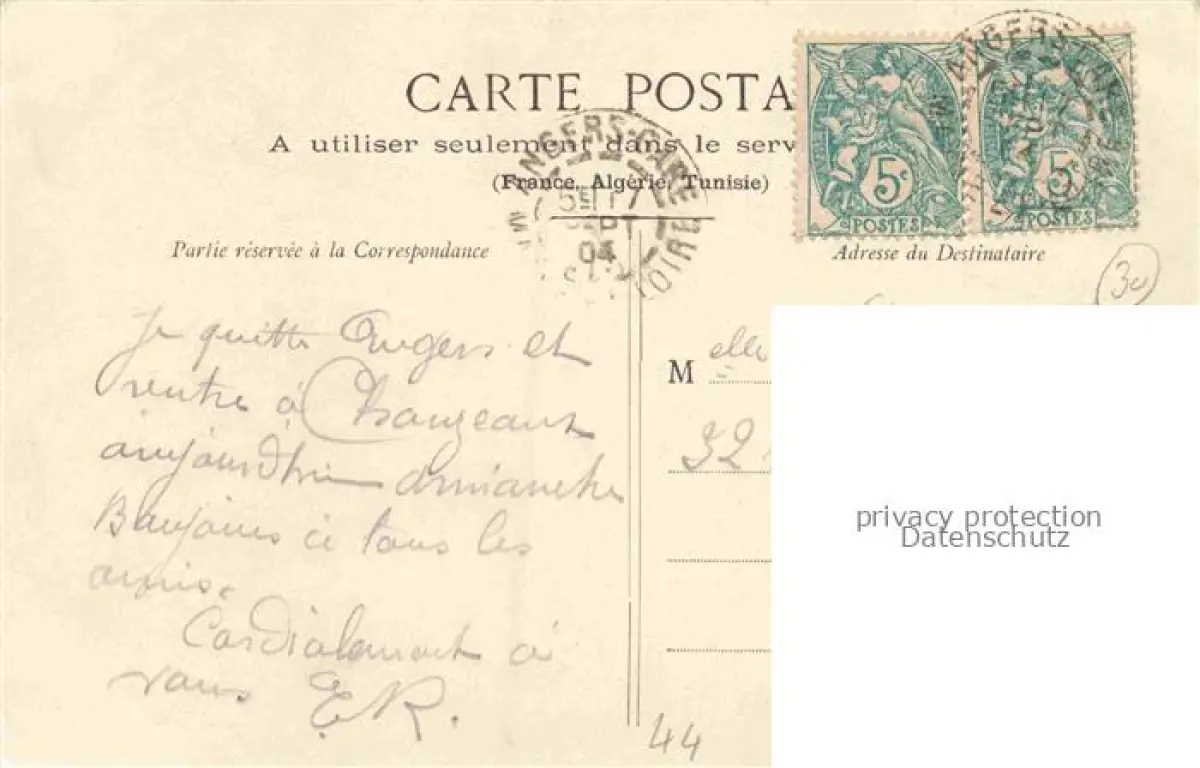 CARTE POSTA
A utiliser seulement dans le serv
(France, Algérie, Tunisie)
ANGERS-GARE
04
5c
POSTES
5c
POSTES
Partie réservée à la Correspondance
Adresse du Destinataire
30
Je quitte Angers et
rentre à Chanzeaux
aujourdhui dimanche
Bonjours à tous les
amis.
Cordialement à
vous E R.
M elle
32
privacy protection
Datenschutz
44